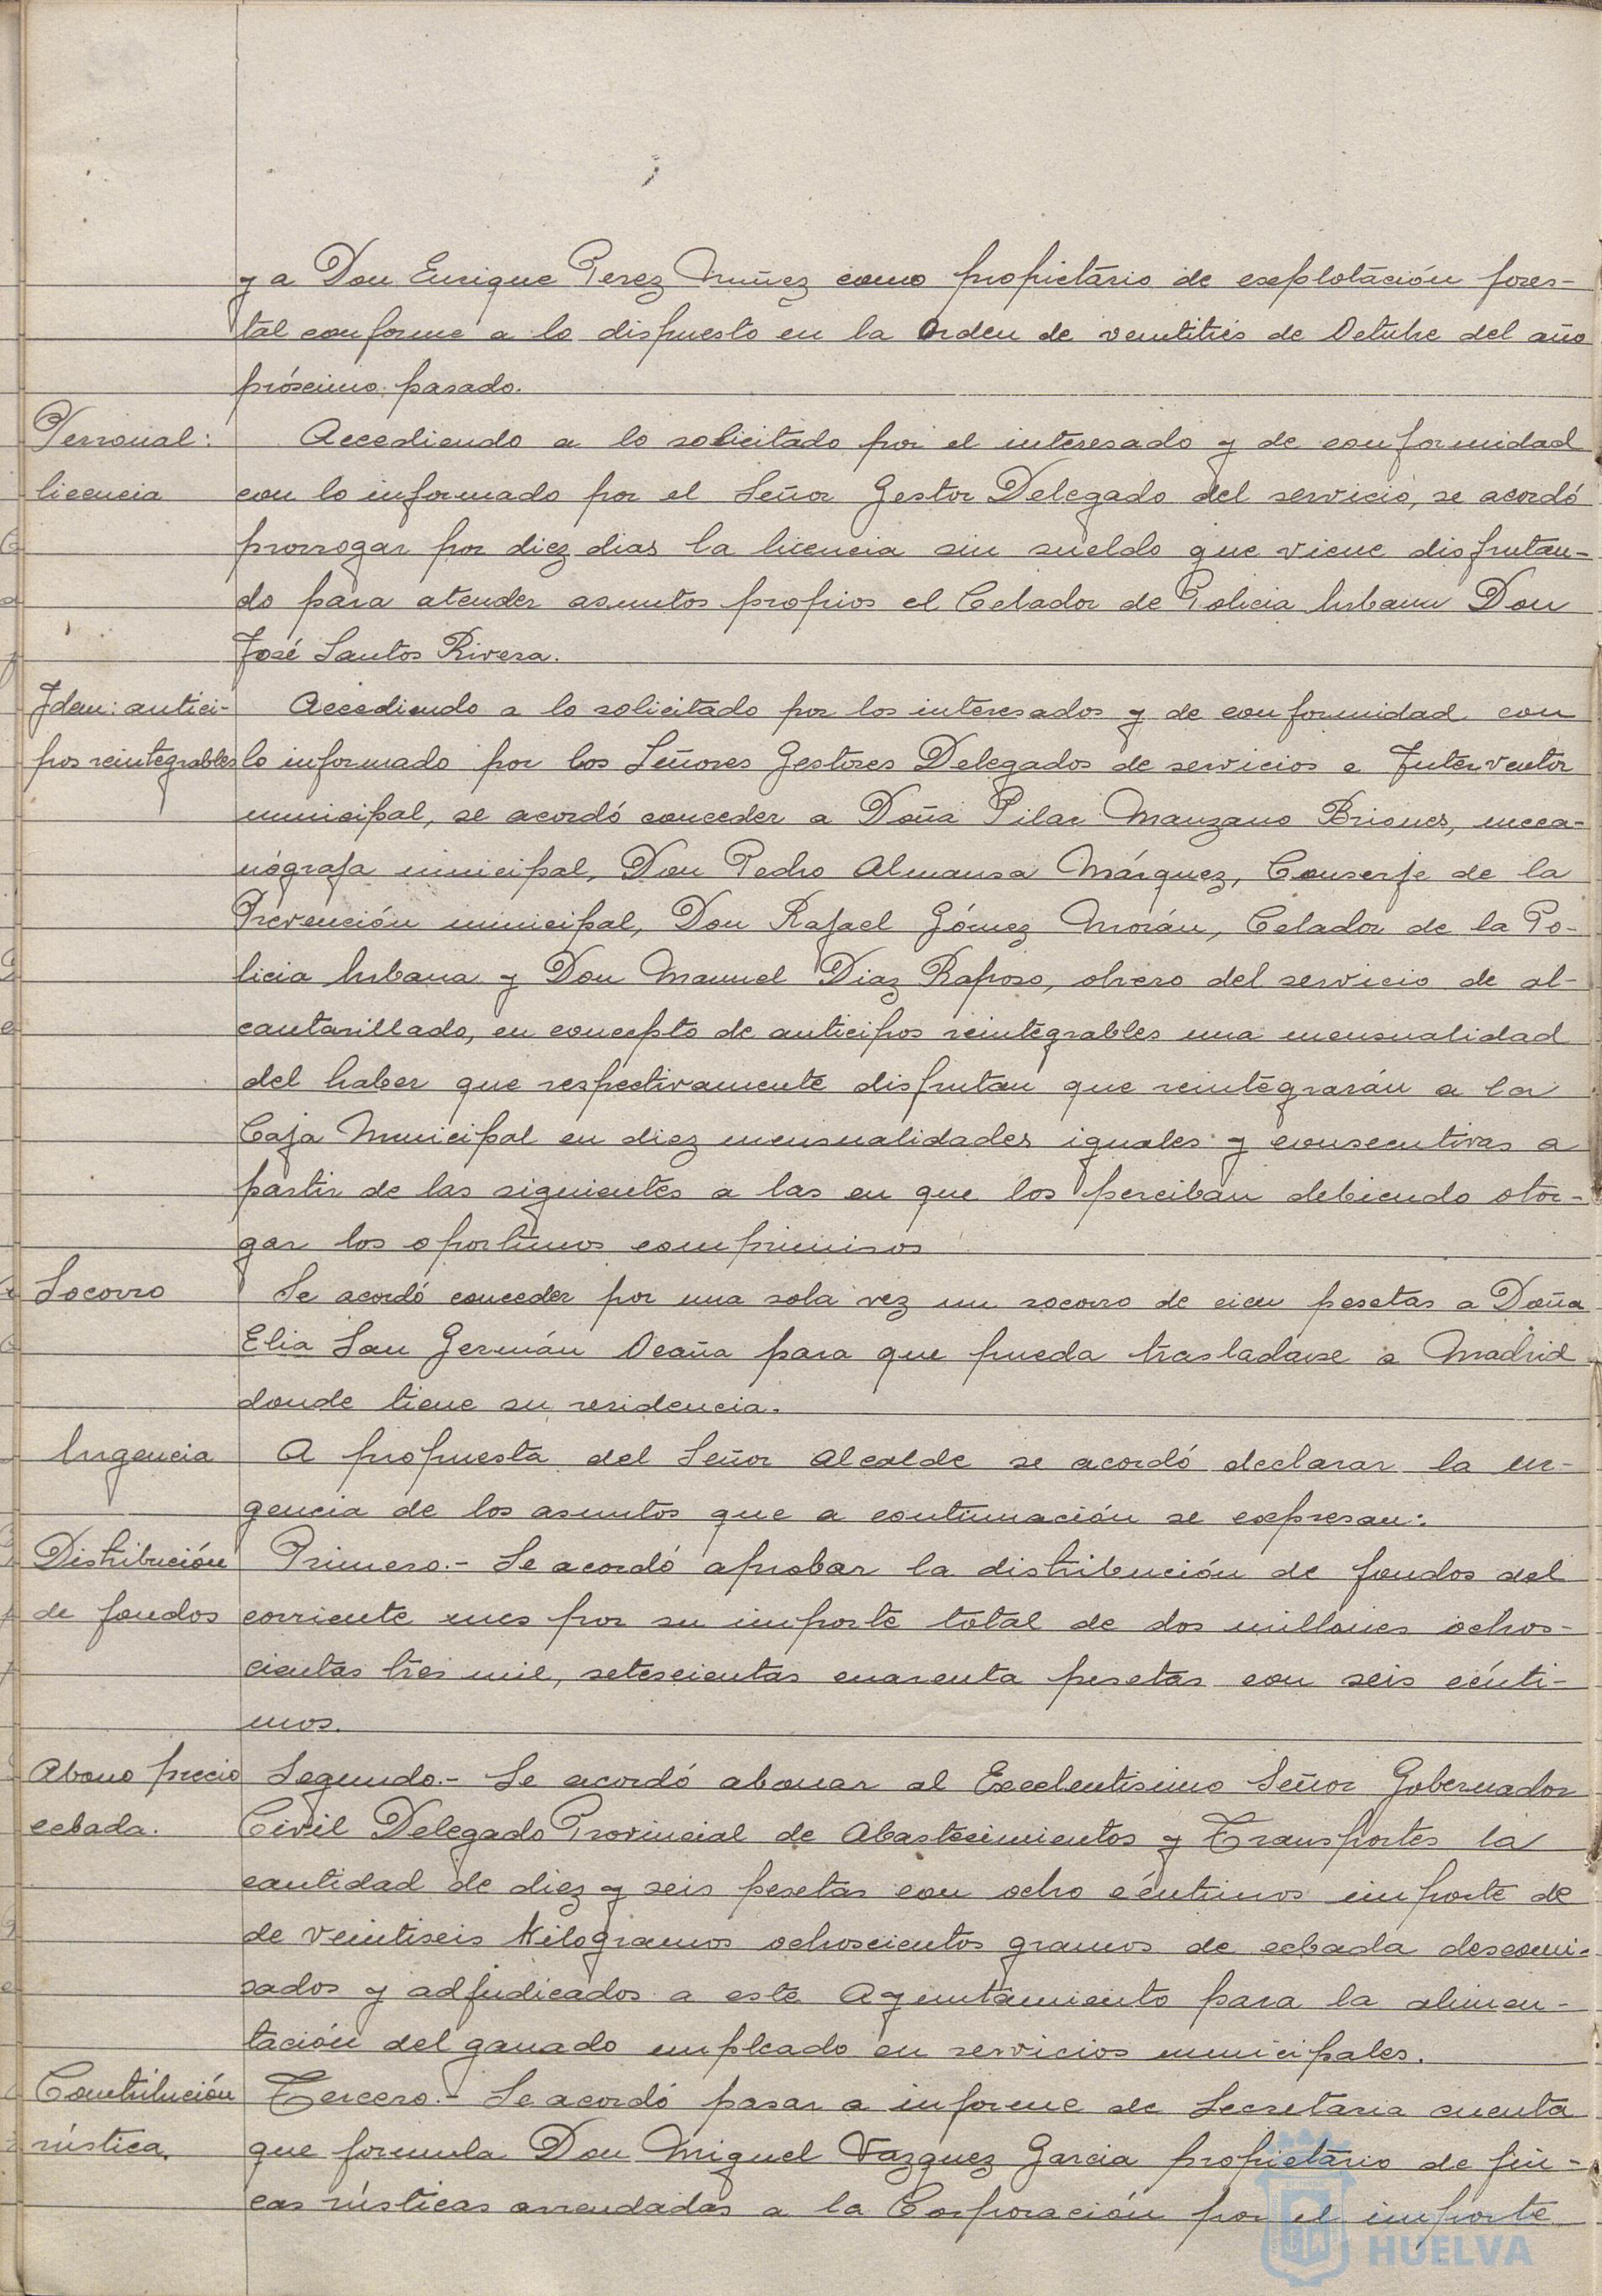 y a Don Enrique Perez Nuñez como propietario de explotación fores-
tal conforme a lo dispuesto en la Orden de veintitrés de Octubre del año
próximo pasado.
Personal: Accediendo a lo solicitado por el interesado y de conformidad
licencia con lo informado por el Señor Gestor Delegado del servicio, se acordó
prorrogar por diez dias la licencia sin sueldo que viene disfrutan-
do para atender asuntos propios el Celador de Policia Urbana Don
José Santos Rivera.
Idem: antici- Accediendo a lo solicitado por los interesados y de conformidad con
pos reintegrables lo informado por los Señores Gestores Delegados de servicios e Interventor
municipal, se acordó conceder a Doña Pilar Manzano Briones, meca-
nógrafa municipal, Don Pedro Almansa Márquez, Conserje de la
Prevención municipal, Don Rafael Gómez Morán, Celador de la Po-
licia Urbana y Don Manuel Diaz Raposo, obrero del servicio de al-
cantarillado, en concepto de anticipos reintegrables una mensualidad
del haber que respectivamente disfrutan que reintegrarán a la
Caja Municipal en diez mensualidades iguales y consecutivas a
partir de las siguientes a las en que los perciban debiendo otor-
gar los oportunos compromisos
Socorro Se acordó conceder por una sola vez un socorro de cien pesetas a Doña
Elia San Germán Ocaña para que pueda trasladarse a Madrid
donde tiene su residencia.
Urgencia A propuesta del Señor Alcalde se acordó declarar la ur-
gencia de los asuntos que a continuación se expresan:
Distribución Primero.- Se acordó aprobar la distribución de fondos del
de fondos corriente mes por su importe total de dos millones ochos-
cientas tres mil, setescientas cuarenta pesetas con seis cénti-
mos.
Abono precio Segundo.- Se acordó abonar al Excelentisimo Señor Gobernador
cebada. Civil Delegado Provincial de Abastecimientos y Transportes la
cantidad de diez y seis pesetas con ocho céntimos importe de
de veintiseis Kilogramos ochoscientos gramos de cebada descomi-
sados y adjudicados a este Ayuntamiento para la alimen-
tación del ganado empleado en servicios municipales.
Contribución Tercero.- Se acordó pasar a informe de Secretaria cuenta
rústica. que formula Don Miguel Vazquez Garcia propietario de fin-
cas rústicas arrendadas a la Corporación por el importe
HUELVA